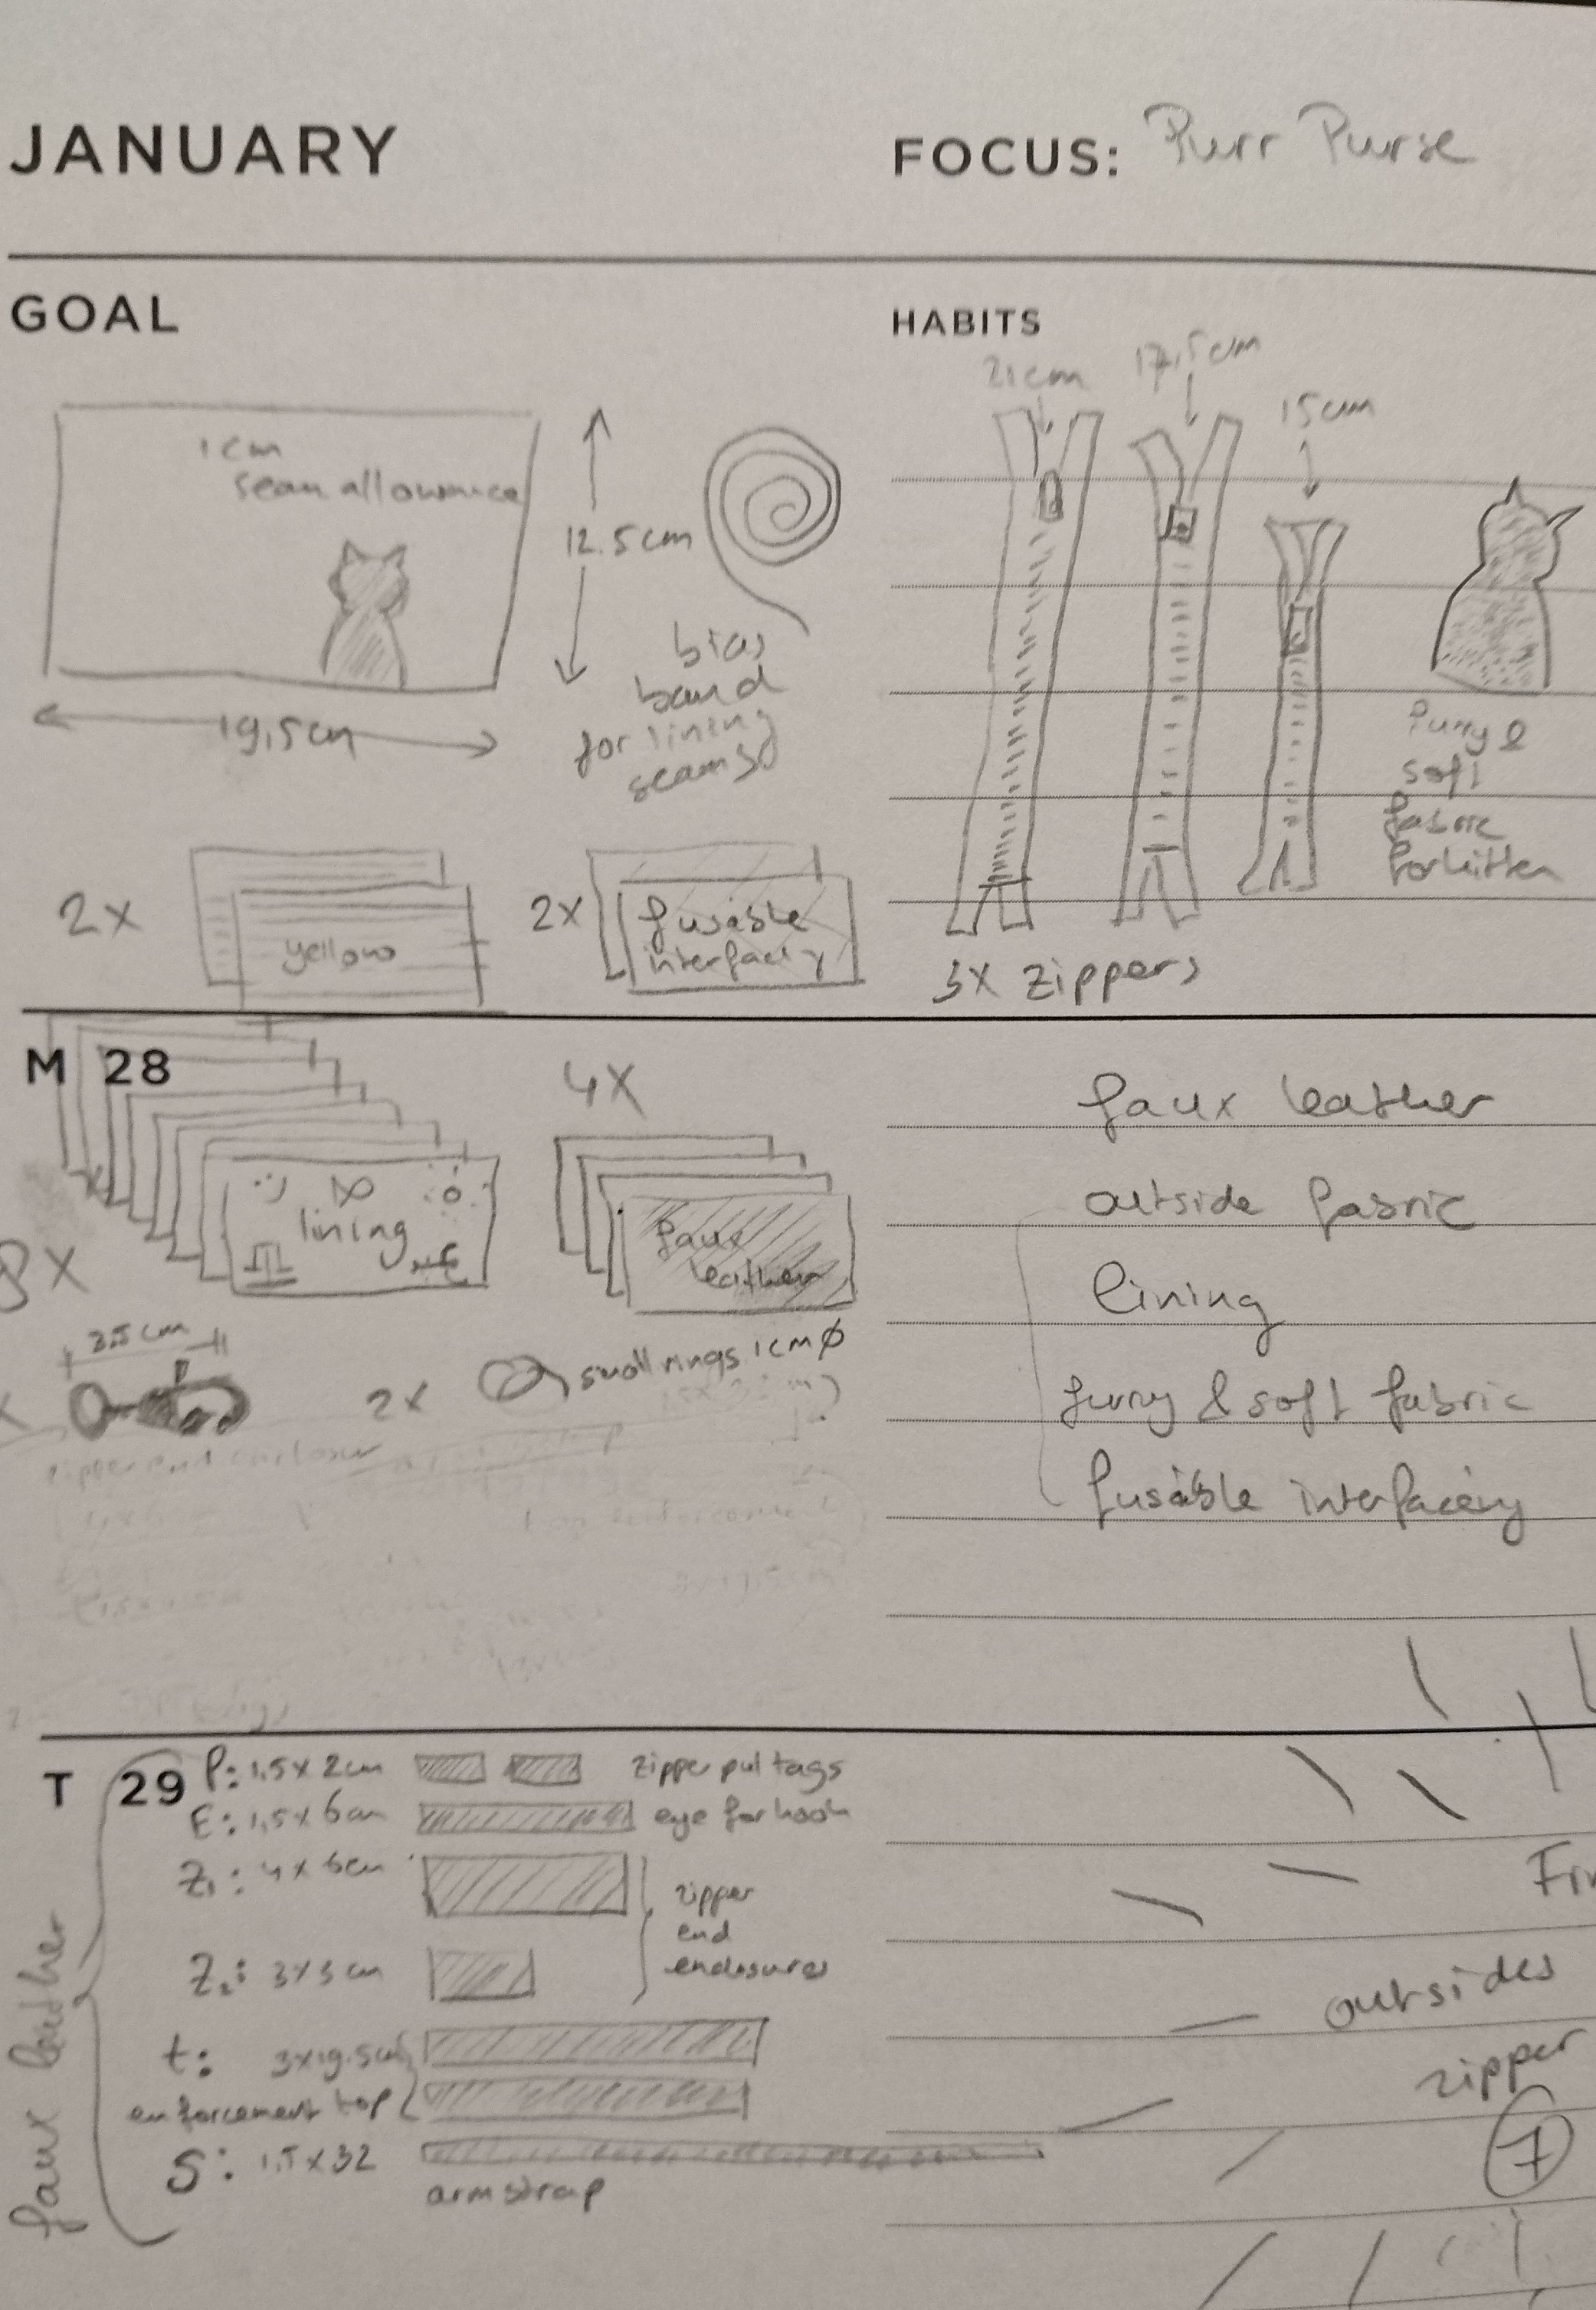 JANUARY
FOCUS: Purr Purse
GOAL
HABITS
1cm
seam allowance
12.5cm
19,5cm
bias
band
for lining
seams
21cm
17,5cm
15cm
furry &
soft
fabric
for kitten
3x zippers
2x
yellow
2x
fusible
interfacing
M 28
8x
lining
4x
faux
leather
3.5cm
2x
small rings 1cm Ø
zipper end enclosur
faux leather
outside fabric
lining
furry & soft fabric
fusible interfacing
T 29
faux leather
P: 1,5 x 2cm
zipper pul tags
E: 1,5 x 6cm
eye for hook
Z1: 4 x 6cm
Z2: 3 x 3cm
zipper
end
enclosures
t: 3x19.5cm
enforcement top
S: 1.5 x 32
armstrap
outsides
zipper
7